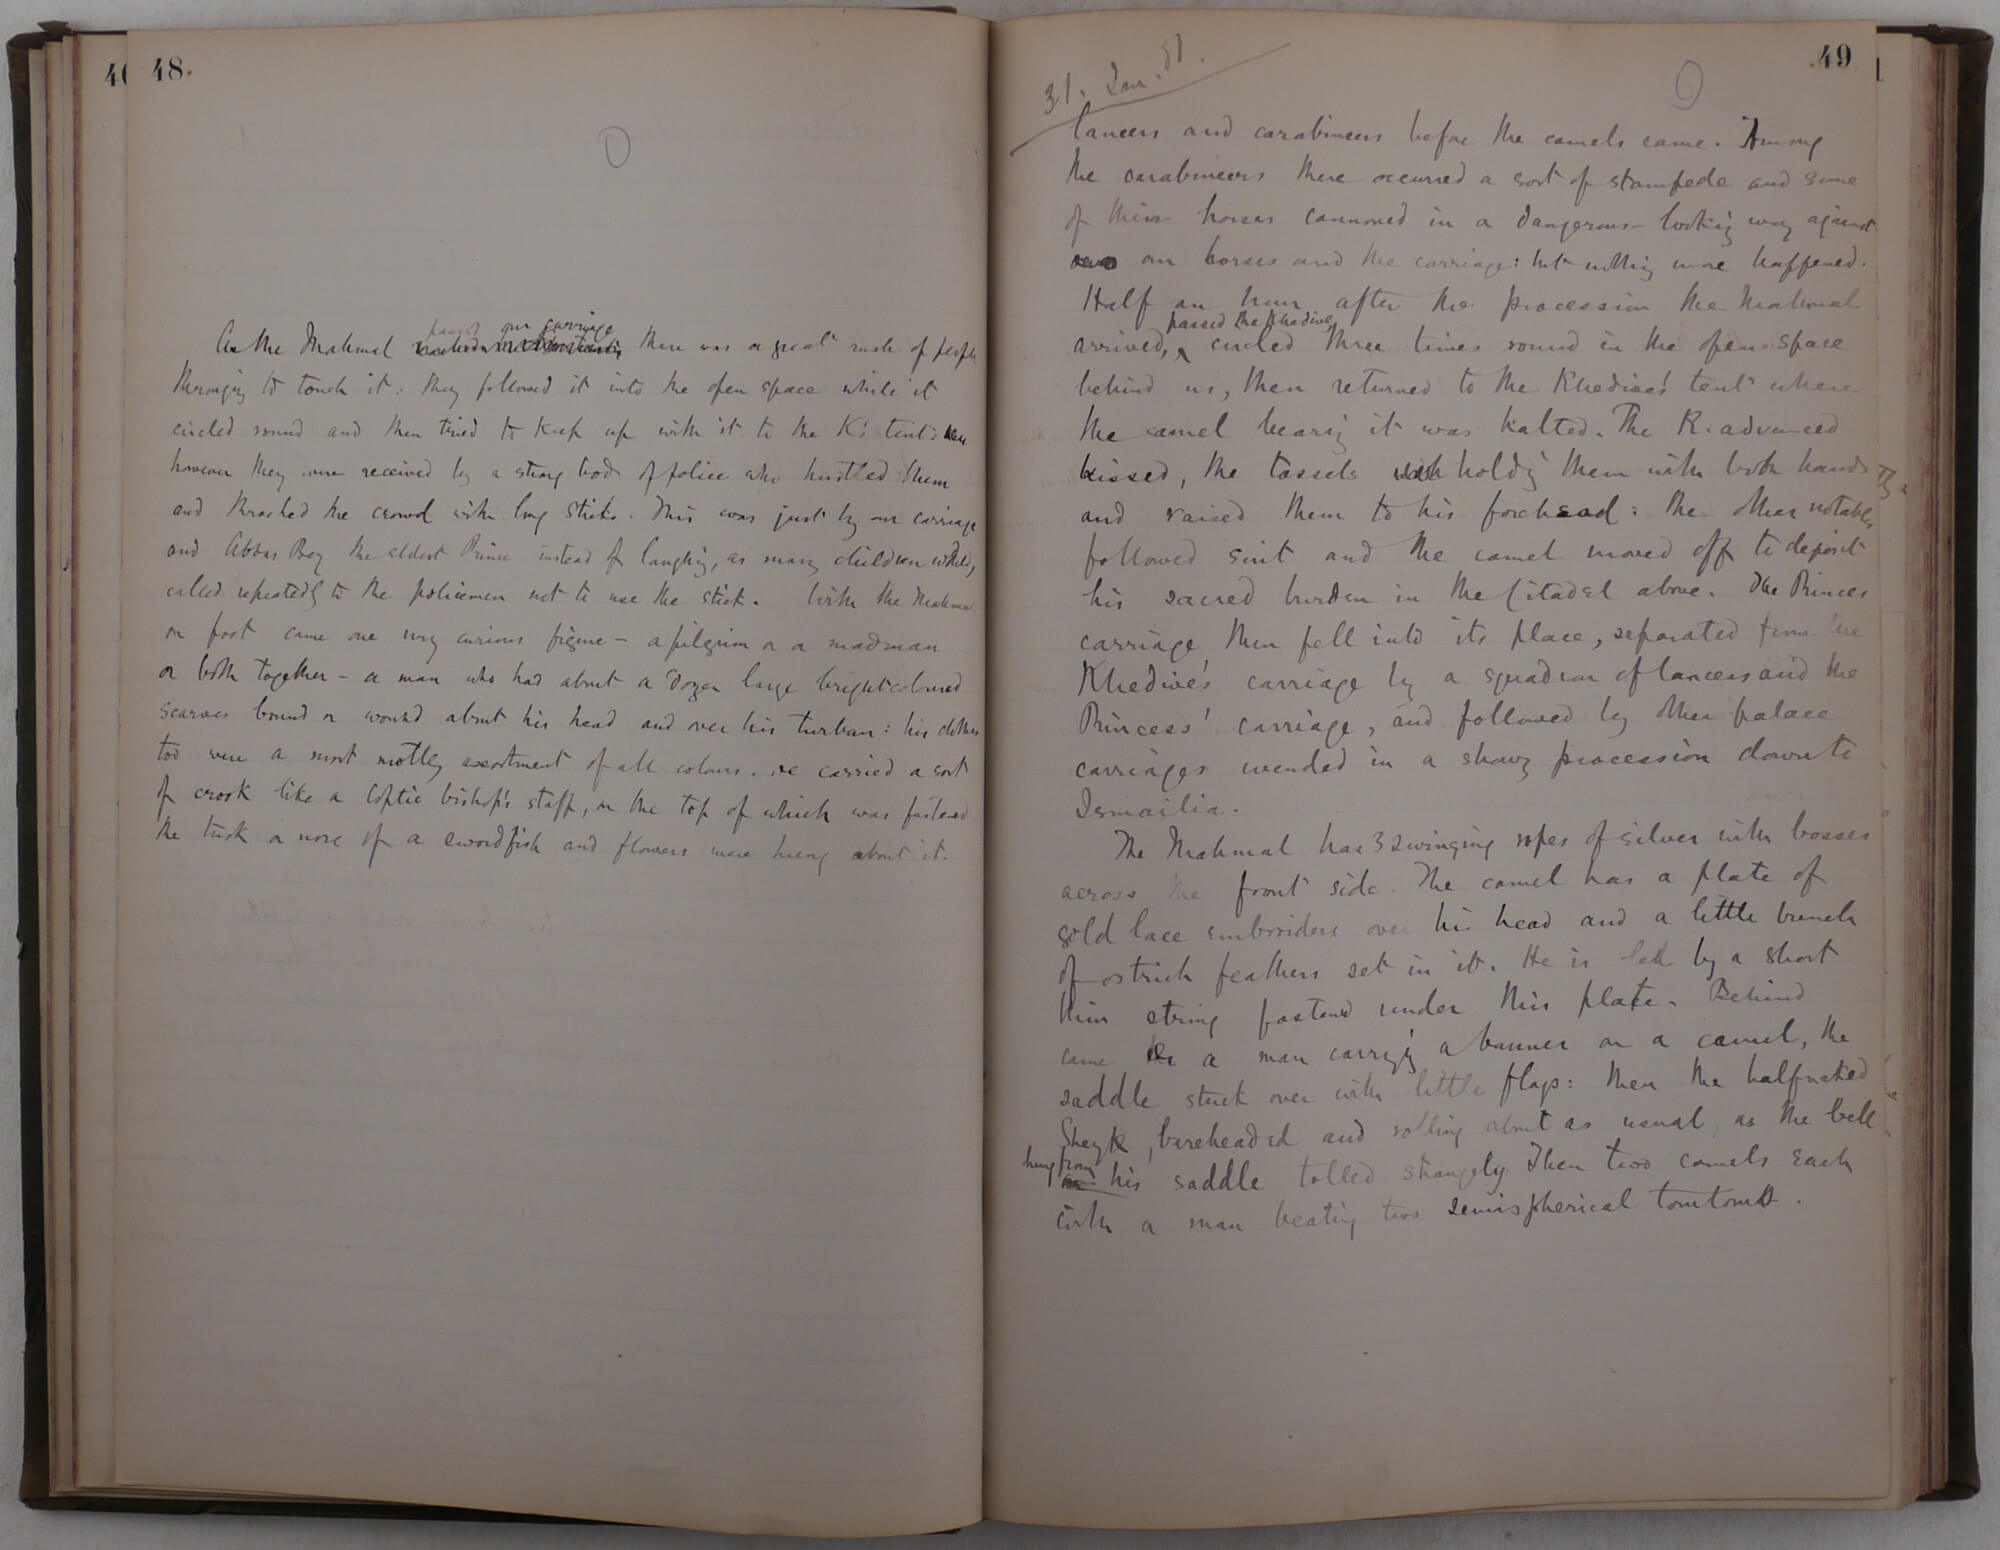 48.
As the Mahmal passed our carriage there was a great rush of people
thronging to touch it: they followed it into the open space while it
circled round and then tried to keep up with it to the K's tent: here
however they were received by a strong body of police who hustled them
and thrashed the crowd with long sticks. This was just by our carriage
and Abbas Bey the eldest Prince instead of laughing, as many children would,
called repeatedly to the policemen not to use the stick. With the Mahmal
on foot came one very curious figure – a pilgrim or a madman
or both together – a man who had about a dozen large brightcoloured
scarves bound or wound about his head and over his turban: his clothes
too were a most motley assortment of all colours. He carried a sort
of crook like a Coptic bishop's staff, on the top of which was fastened
the tusk or nose of a swordfish and flowers were hung about it.
49
31. Jan. 81.
lancers and carabineers before the camels came. Among
the carabineers there occurred a sort of stampede and some
of their horses cannoned in a dangerous-looking way against
our horses and the carriage: but nothing more happened.
Half an hour after the procession the Mahmal
arrived, passed the Khedive, circled three times round in the open space
behind us, then returned to the Khedive's tent where
the camel bearing it was halted. The K. advanced
kissed, the tassels holdg them with both hands
and raised them to his forehead: the other notables
followed suit and the camel moved off to deposit
his sacred burden in the Citadel above. The Princes
carriage then fell into its place, separated from the
Khedive's carriage by a squadron of lancers and the
Princess' carriage, and followed by other palace
carriages wended in a showy procession down to
Ismailia.
The Mahmal has 3 swinging ropes of silver with bosses
across the front side. The camel has a plate of
gold lace embroidery over his head and a little bunch
of ostrich feathers set in it. He is led by a short
thin string fastened under this plate. Behind
came a man carryg a banner on a camel, the
saddle stuck over with little flags: then the halfnaked
Sheyk, bareheaded and rolling about as usual, as the bell
hung from his saddle tolled strangely. Then two camels each
with a man beating two semispherical tomtoms.